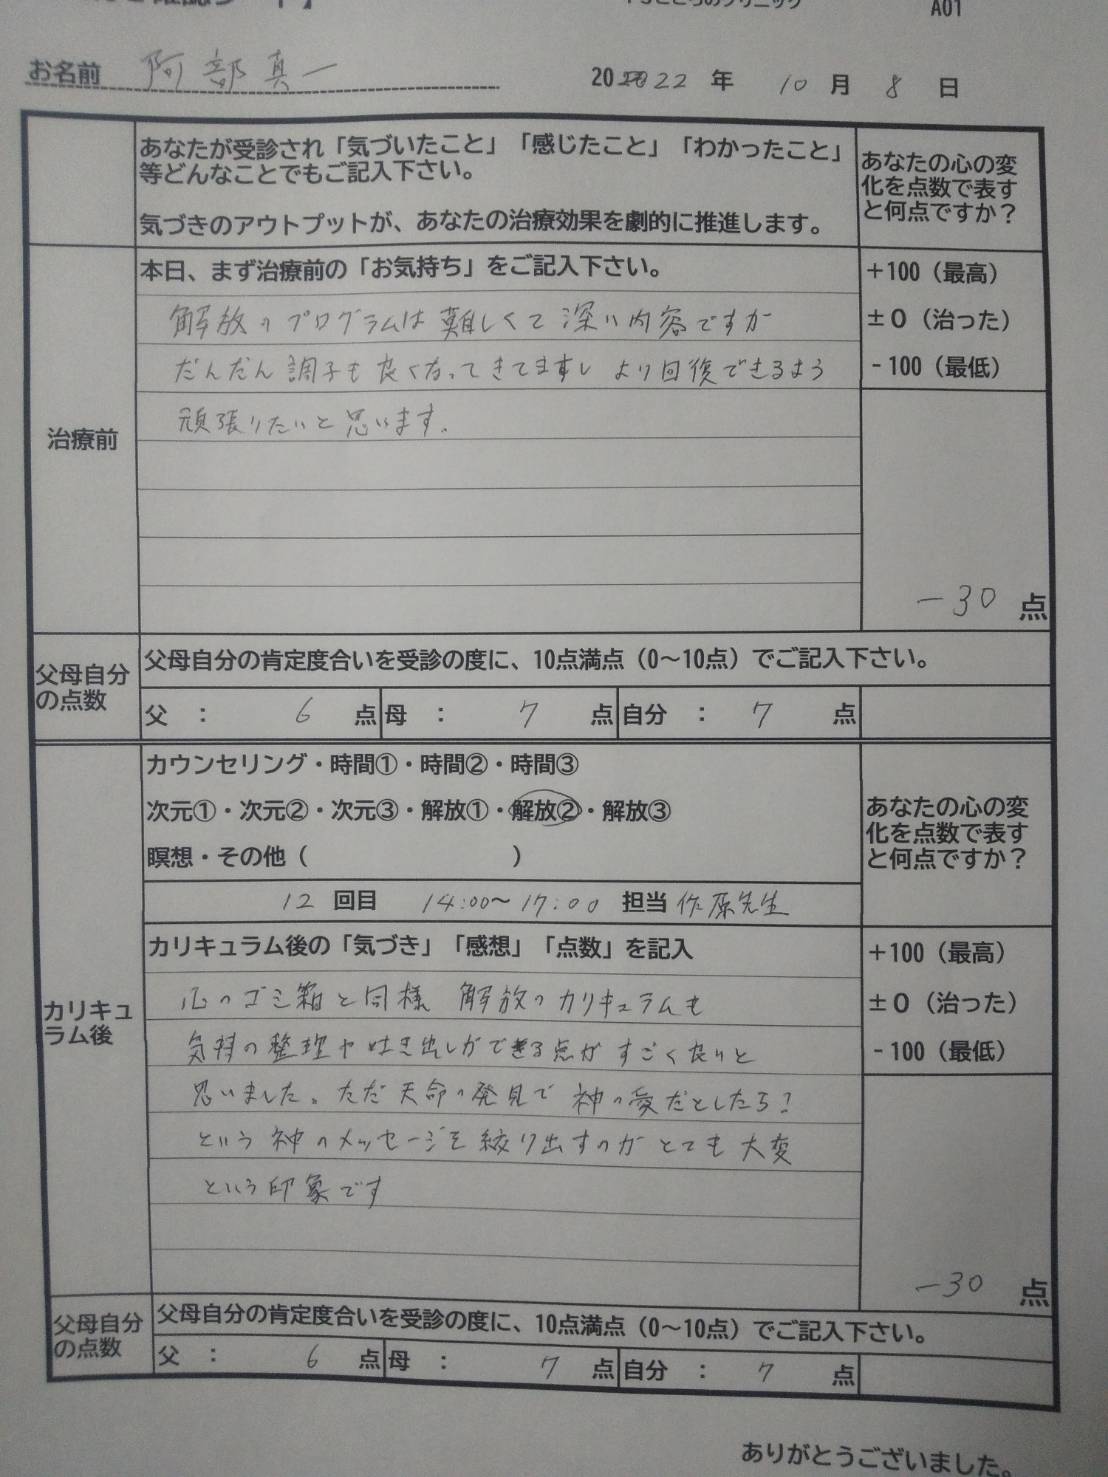 こころのクリニック A01
お名前 阿部真一 2022 年 10 月 8 日
あなたが受診され「気づいたこと」「感じたこと」「わかったこと」
等どんなことでもご記入下さい。
気づきのアウトプットが、あなたの治療効果を劇的に推進します。
あなたの心の変
化を点数で表す
と何点ですか？
治療前
本日、まず治療前の「お気持ち」をご記入下さい。
解放のプログラムは難しくて深い内容ですが
だんだん調子も良くなってきてますし より回復できるよう
頑張りたいと思います。
+100（最高）
±0（治った）
-100（最低）
-30 点
父母自分
の点数
父母自分の肯定度合いを受診の度に、10点満点（0～10点）でご記入下さい。
父 ： 6 点 母 ： 7 点 自分 ： 7 点
カリキュ
ラム後
カウンセリング・時間①・時間②・時間③
次元①・次元②・次元③・解放①・解放②・解放③
瞑想・その他（ ）
12 回目 14:00～17:00 担当 佐原先生
あなたの心の変
化を点数で表す
と何点ですか？
カリキュラム後の「気づき」「感想」「点数」を記入
心のゴミ箱と同様 解放のカリキュラムも
気持の整理や吐き出しができる点がすごく良いと
思いました。ただ天命の発見で神の愛だとしたら？
という神のメッセージを絞り出すのがとても大変
という印象です
+100（最高）
±0（治った）
-100（最低）
-30 点
父母自分
の点数
父母自分の肯定度合いを受診の度に、10点満点（0～10点）でご記入下さい。
父 ： 6 点 母 ： 7 点 自分 ： 7 点
ありがとうございました。